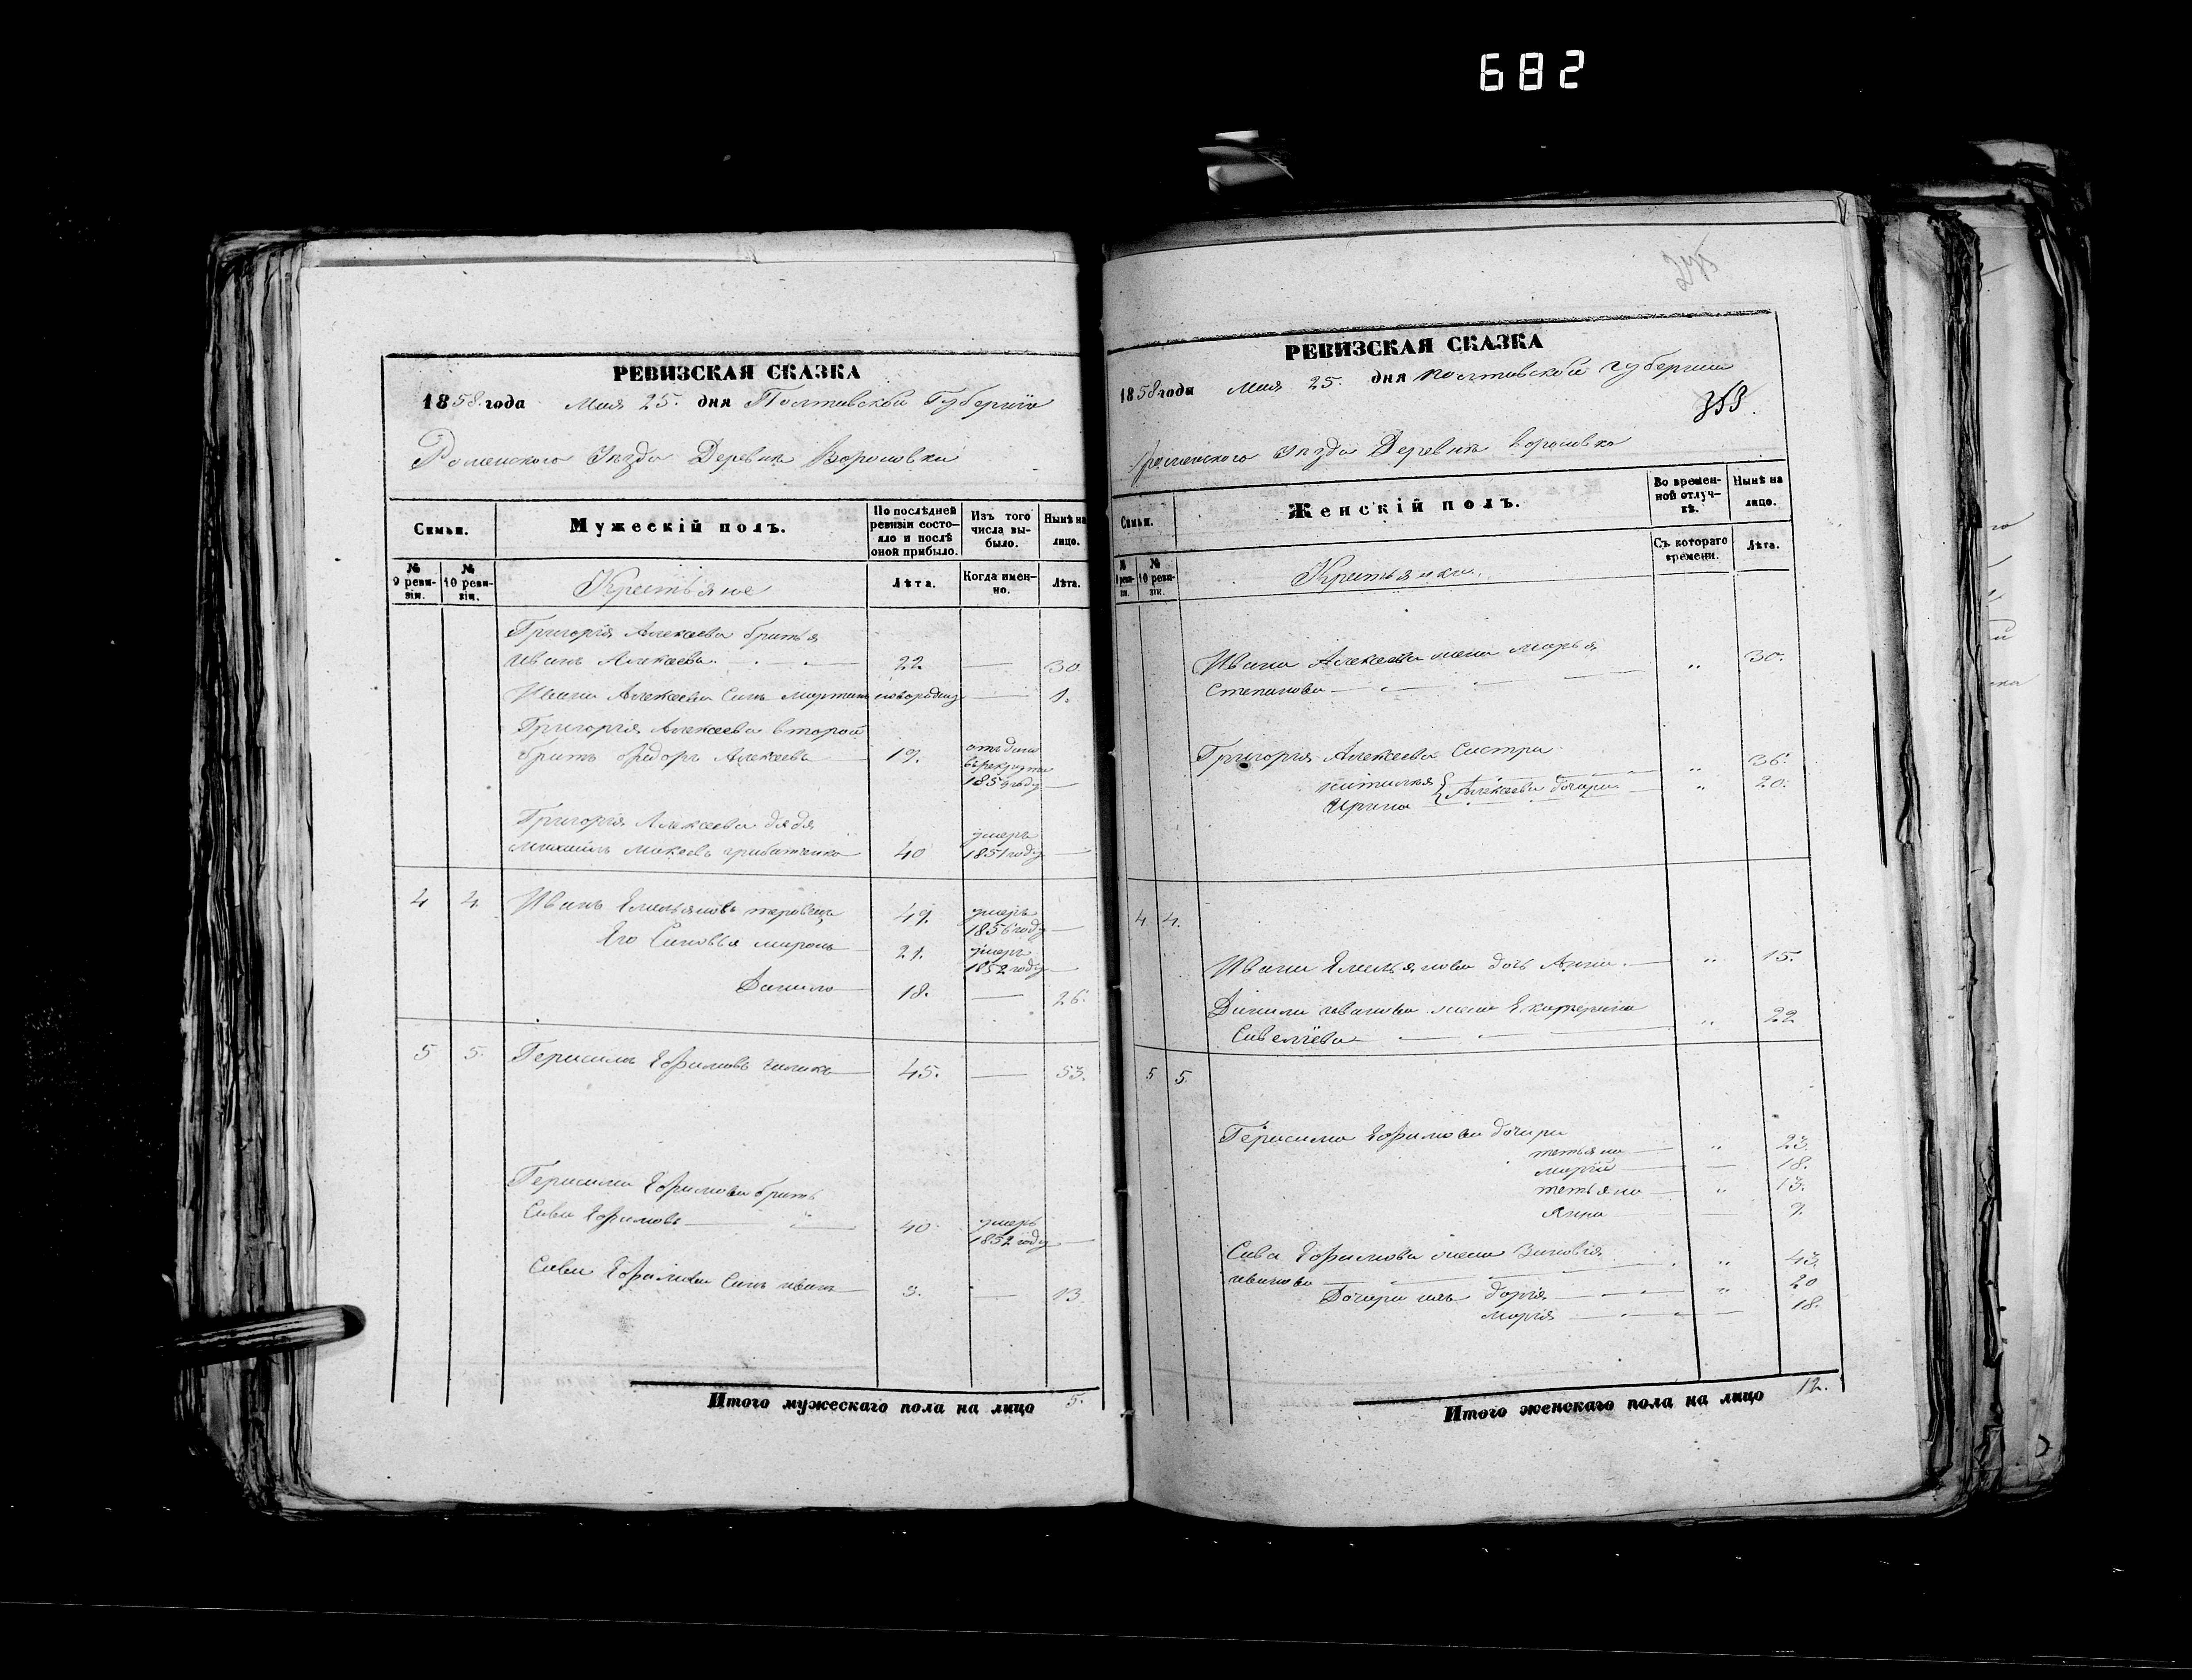 682
РЕВИЗСКАЯ СКАЗКА
1858 года Мая 25. дня Полтавской Губернiи
Роменского Уѣзда Деревни Воро
Семьи.
Мужескiй полъ.
По послѣдней ревизiи состояло и послѣ оной прибыло.
Изъ того числа выбыло.
Нынѣ на лицо.
№ 9 ревизiи.
№ 10 ревизiи.
Крестьяне
Лѣта.
Когда именно.
Лѣта.
Григорiя Алексеева братья
Иванъ Алексеевъ 22 — 30
Ивана Алексеева Синъ Мартинъ новорожд — 1.
Григорiя Алексеева второй
братъ Федоръ Алексеевъ 19. отъдано
врекруты
185 году —
Григорiя Алексеева дядя
Михаилъ 40 умеръ
1851 году —
4 4. Иванъ Емельяновъ 49. умеръ
1856 году —
Его Синовья Миронъ 21. умеръ
1852 году —
Данило 18. — 26.
5 5. Герасимъ Ефимовъ 45. — 53.
Герасима Ефимова братъ
Сава Ефимовъ 40. умеръ
1852 году —
Савы Ефимова Синъ Иванъ — 13
Итого мужескаго пола на лицо 5.
275
РЕВИЗСКАЯ СКАЗКА
1858 года Мая 25. дня Полтавской Губернiи
353.
Роменского Уѣзда Деревни
Семьи.
Женскiй полъ.
Во временной отлучкѣ.
Нынѣ на лицо.
№ 9 ревизiи.
№ 10 ревизiи.
Крестьянки.
Съ котораго времени.
Лѣта.
Ивана Алексеева жена Марья
Степанова „ 30.
Григорiя Алексеева Систра
Наталия „ 36.
Ирина Алексеева дочери „ 20.
4 4.
Ивана Емельянова дочь Анна „ 15.
Данила Иванова жена Екатерина
Савелiева „ 22
5 5.
Герасима Ефимова дочери
тетьяна — „ 23.
Марiя — — 18.
тетьяна „ 13.
Анна — 9.
Сава Ефимова жена Зиновiя
Иванова „ 43.
Дочери ихъ дарiя „ 20
Марiя — 18.
Итого женскаго пола на лицо 12.